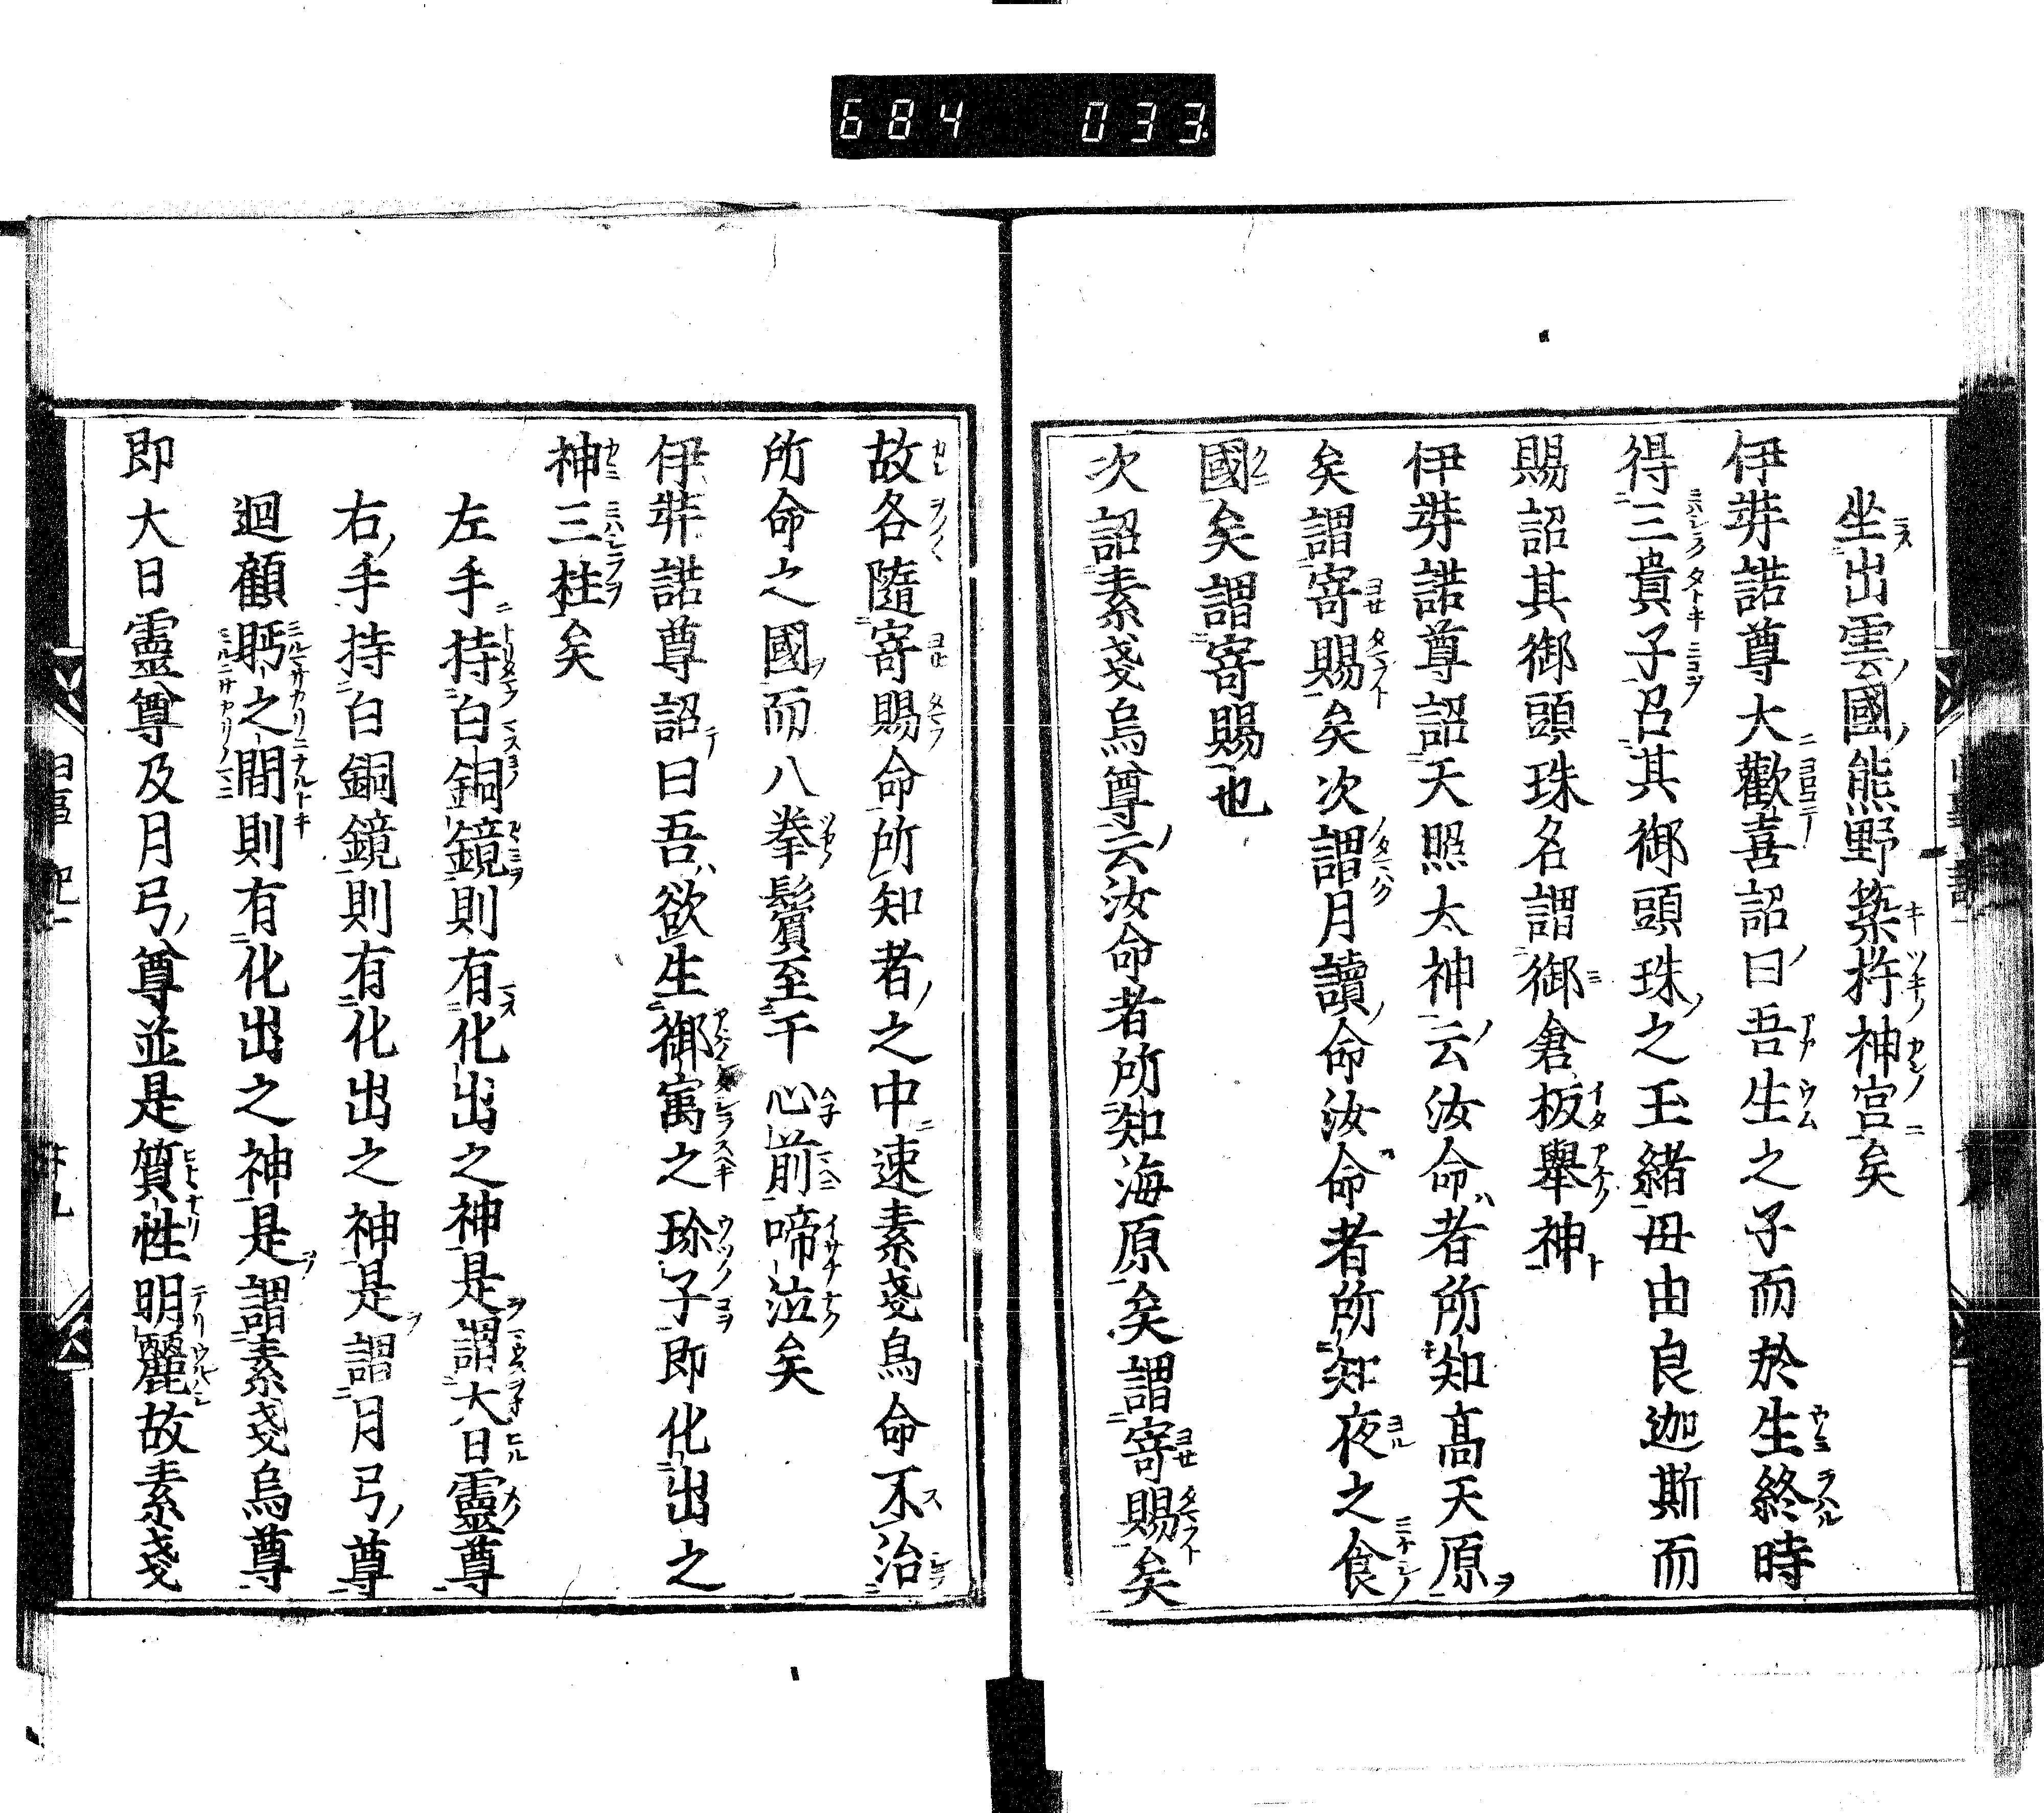 684 033
坐出雲國熊野築杵神宮矣
伊弉諾尊大歡喜詔曰吾生之子而於生終時
得三貴子召其御頭珠之玉緒毋由良迦斯而
賜詔其御頭珠名謂御倉板舉神
伊弉諾尊詔天照太神云汝命者所知高天原
矣謂寄賜矣次謂月讀命汝命者所知夜之食
國矣謂寄賜也
次詔素戔烏尊云汝命者所知海原矣謂寄賜矣
故各隨寄賜命所知者之中速素戔烏命不治
所命之國而八拳鬚至于心前啼泣矣
伊弉諾尊詔曰吾欲生御寓之珍子即化出之
神三柱矣
左手持白銅鏡則有化出之神是謂大日靈尊
右手持白銅鏡則有化出之神是謂月弓尊
迴顧眄之間則有化出之神是謂素戔烏尊
即大日靈尊及月弓尊並是質性明麗故素戔